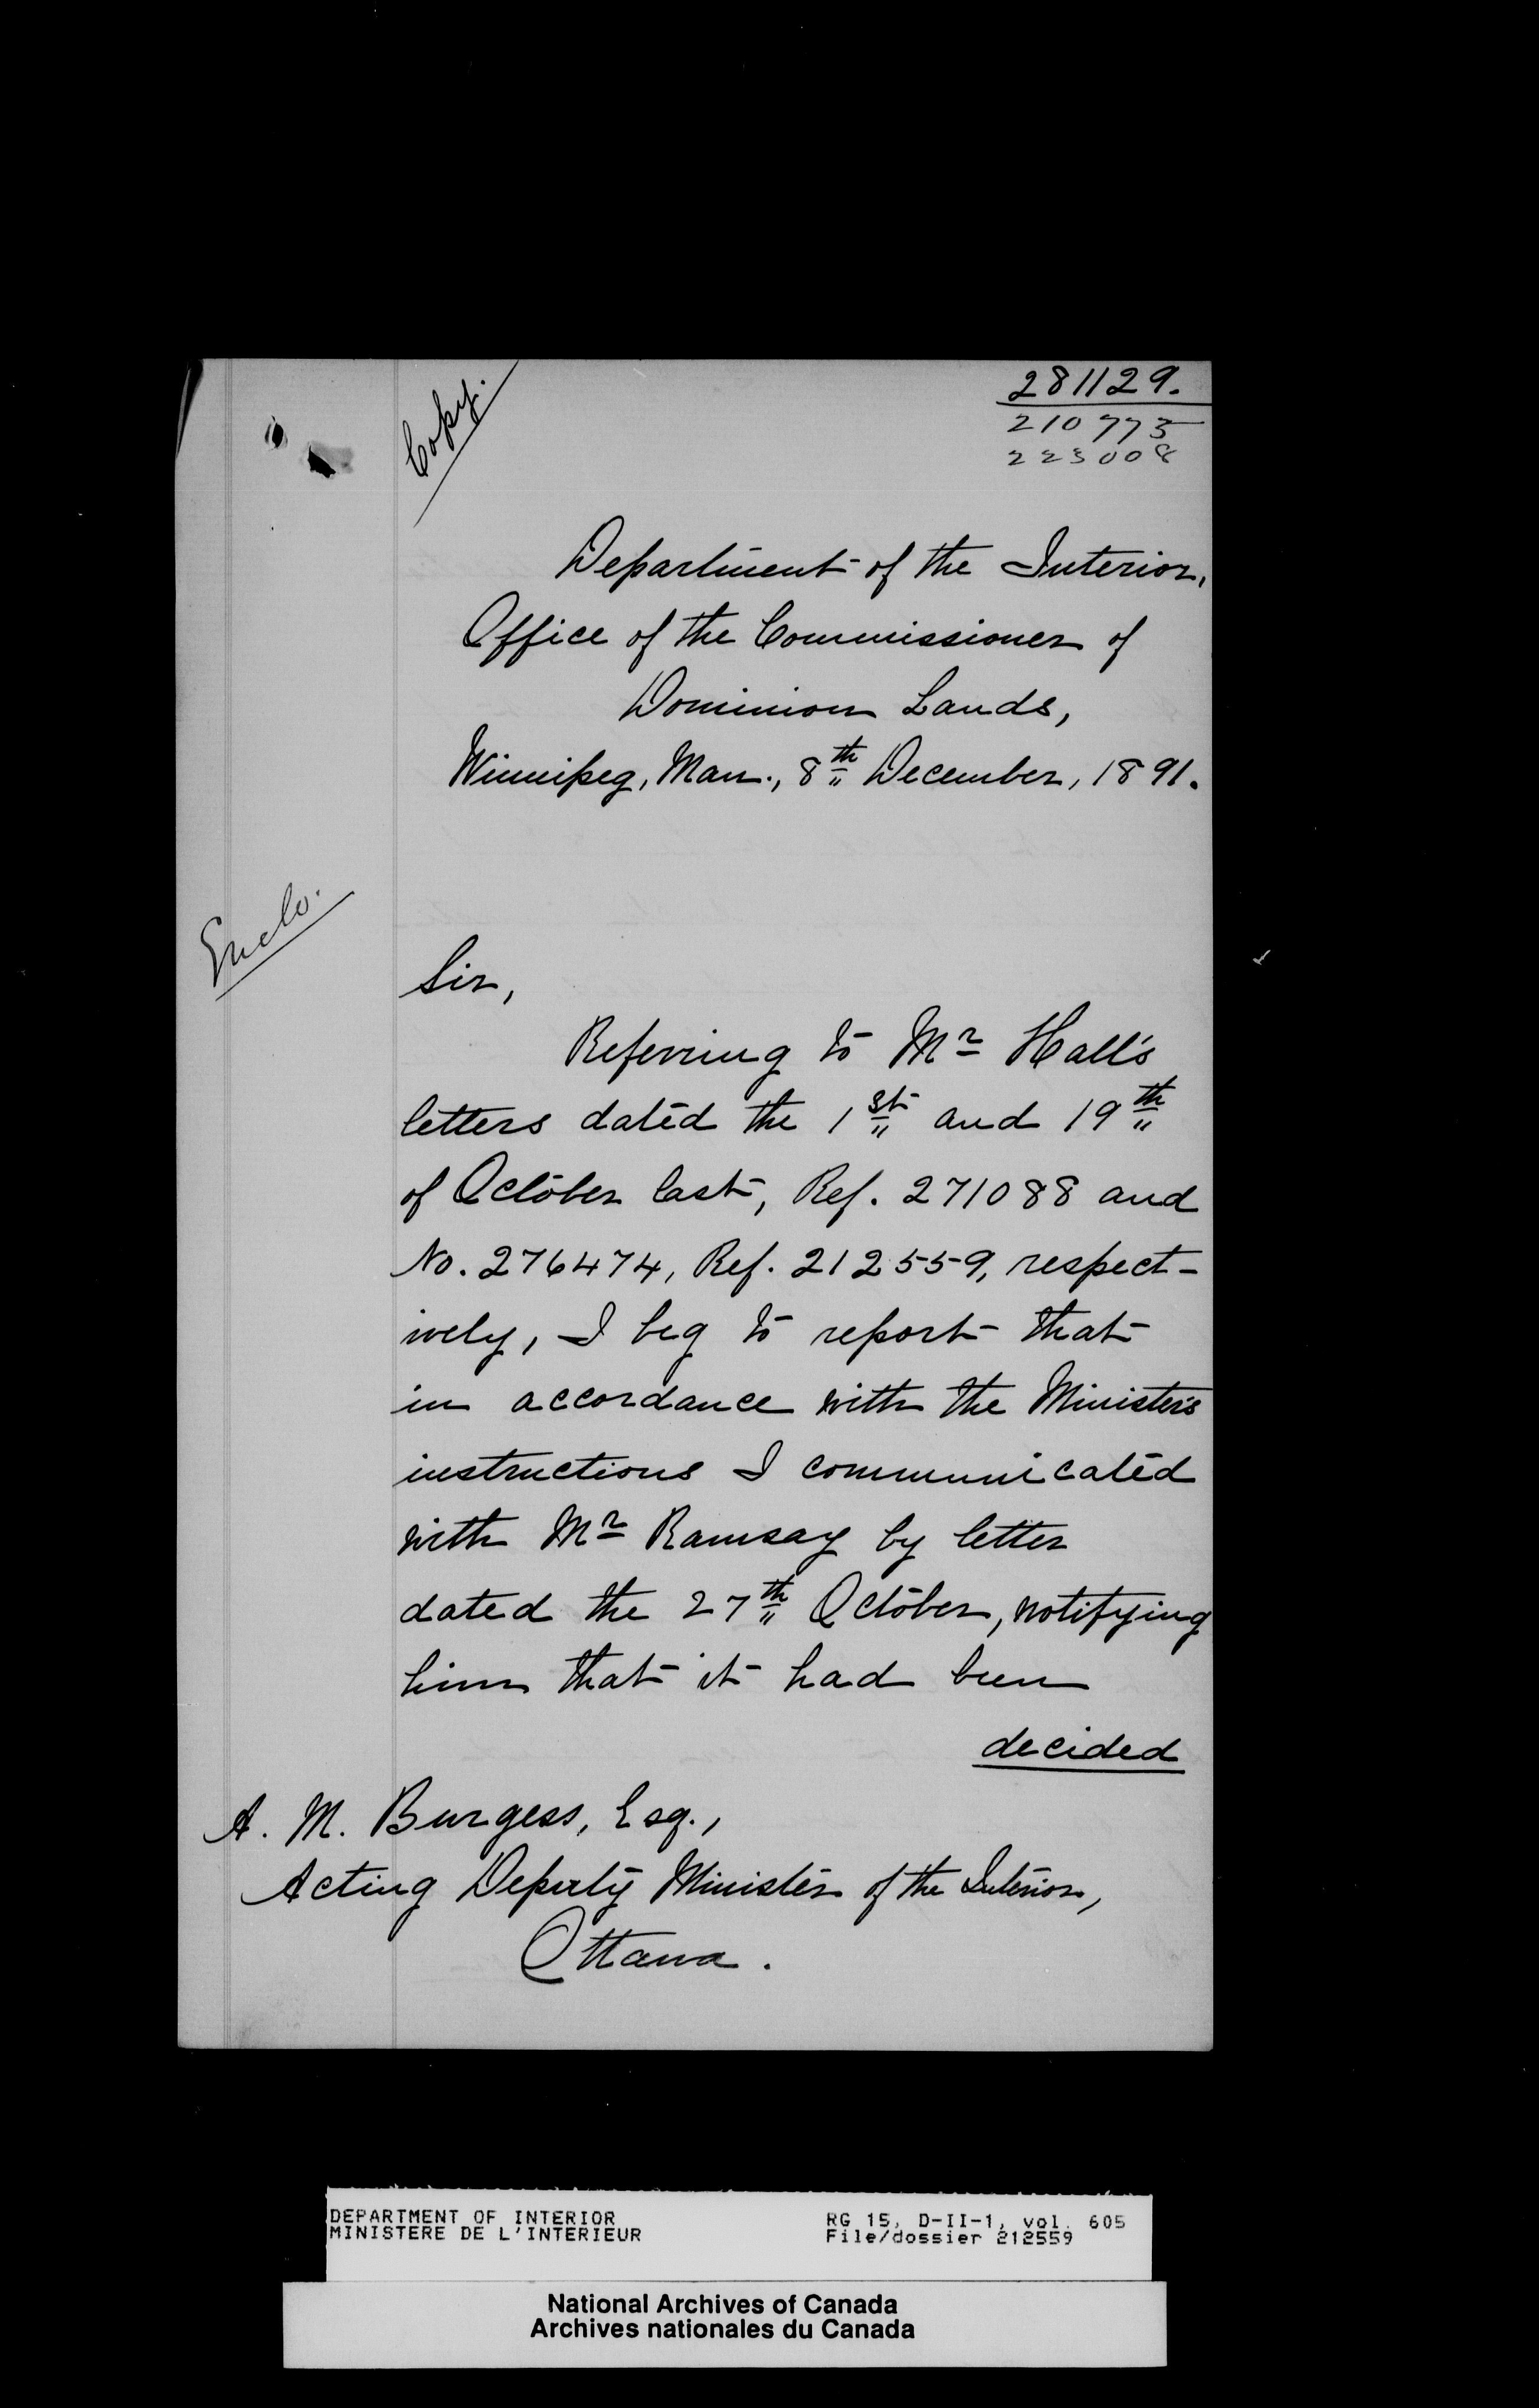 Copy.
281129.
210773
223008
Department of the Interior,
Office of the Commissioner of
Dominion Lands,
Winnipeg, Man., 8th December, 1891.
Enclo.
Sir,
Referring to Mr Hall's
letters dated the 1st and 19th
of October last, Ref. 271088 and
No. 276474, Ref. 212559, respect-
ively, I beg to report that
in accordance with the Minister's
instructions I communicated
with Mr Ramsay by letter
dated the 27th October, notifying
him that it had been
decided
A. M. Burgess, Esq.,
Acting Deputy Minister of the Interior,
Ottawa.
DEPARTMENT OF INTERIOR
MINISTERE DE L'INTERIEUR
RG 15, D-II-1, vol. 605
File/dossier 212559
National Archives of Canada
Archives nationales du Canada